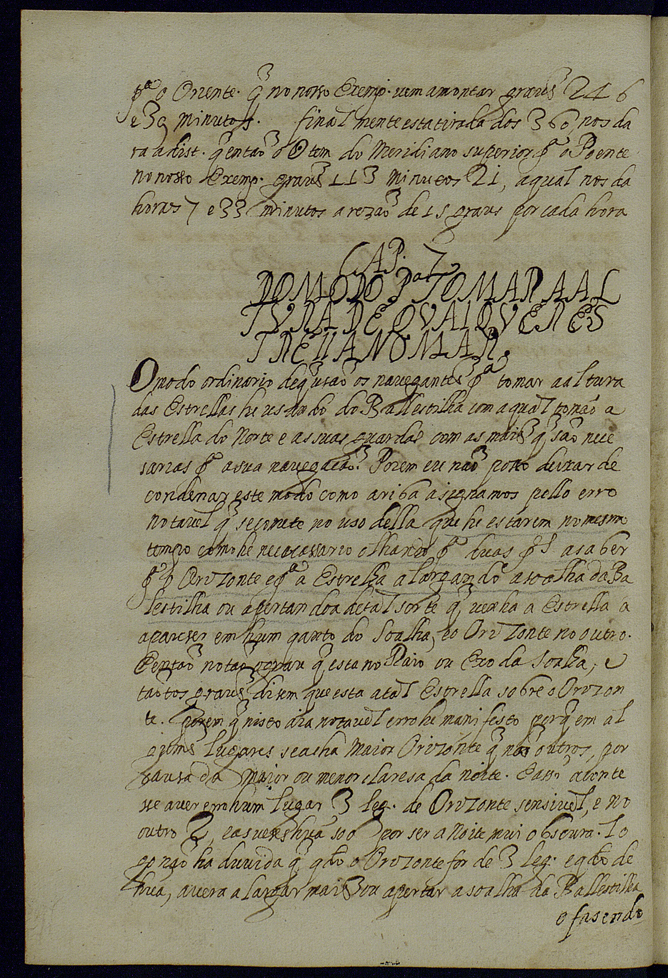 pª o Oriente. q̃ no nosso Exemp. vem amontar graus 246
e 39 minutos. finalmente esta tirada dos 360, nos da
ra a dist. q̃ entaõ o O tem do Meridiano superior pª o Poente
no nosso Exemp. graus 113 minutos 21, a qual nos da
horas 7 e 33 minutos a rezaõ de 15 graus por cada hora
CAP. 7
DO MODO Pª TOMAR A AL
TVRA DE QVALQVER ES
TRELLA NO MAR.
O modo ordinario de q̃ usaõ os navegantes pª tomar a altura
das Estrellas he usando do Ballestilha com a qual tomaõ a
Estrella do Norte e as suas guardas com as mais q̃ saõ nece
sarias pª a sua navegaçaõ. Porem eu naõ posso deixar de
condenar este modo como ariba asignamos pello erro
notavel q̃ se comete no uso della que he estarem no mesmo
tempo como he necessario olhando pª duas ptˢ a saber
pª o Orizonte e pª a Estrella alargando a soalha da Ba
lestilha ou apertandoa de tal sorte q̃ venha a Estrella a
aparcer em hum canto do Soalha, e o Orizonte no outro.
E entaõ notaõ o grau q̃ esta no Raio ou Exo da Soalha, e
tantos graus disem que esta a tal Estrella sobre o Orizon
te. Porem q̃ nisto aia notavel erro he manifesto porq̃ em al
guns lugares se acha maior Orizonte q̃ nos outros, por
causa da maior ou menor claresa da noite. E assi aconte
se aver em hum lugar 3 leg. de Orizonte sensivel, e no
outro 2, e as vezes hua soo por ser a Noite mui obscura. Lo
go naõ ha duvida q̃ qdo o Orizonte for de 3 leg. e qdo de
hua, avera alargar mais ou apertar a soalha da Ballestilha
e fasendo